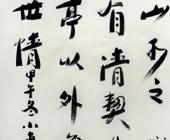 山水之
有清契
亭以外
世情甲午冬小